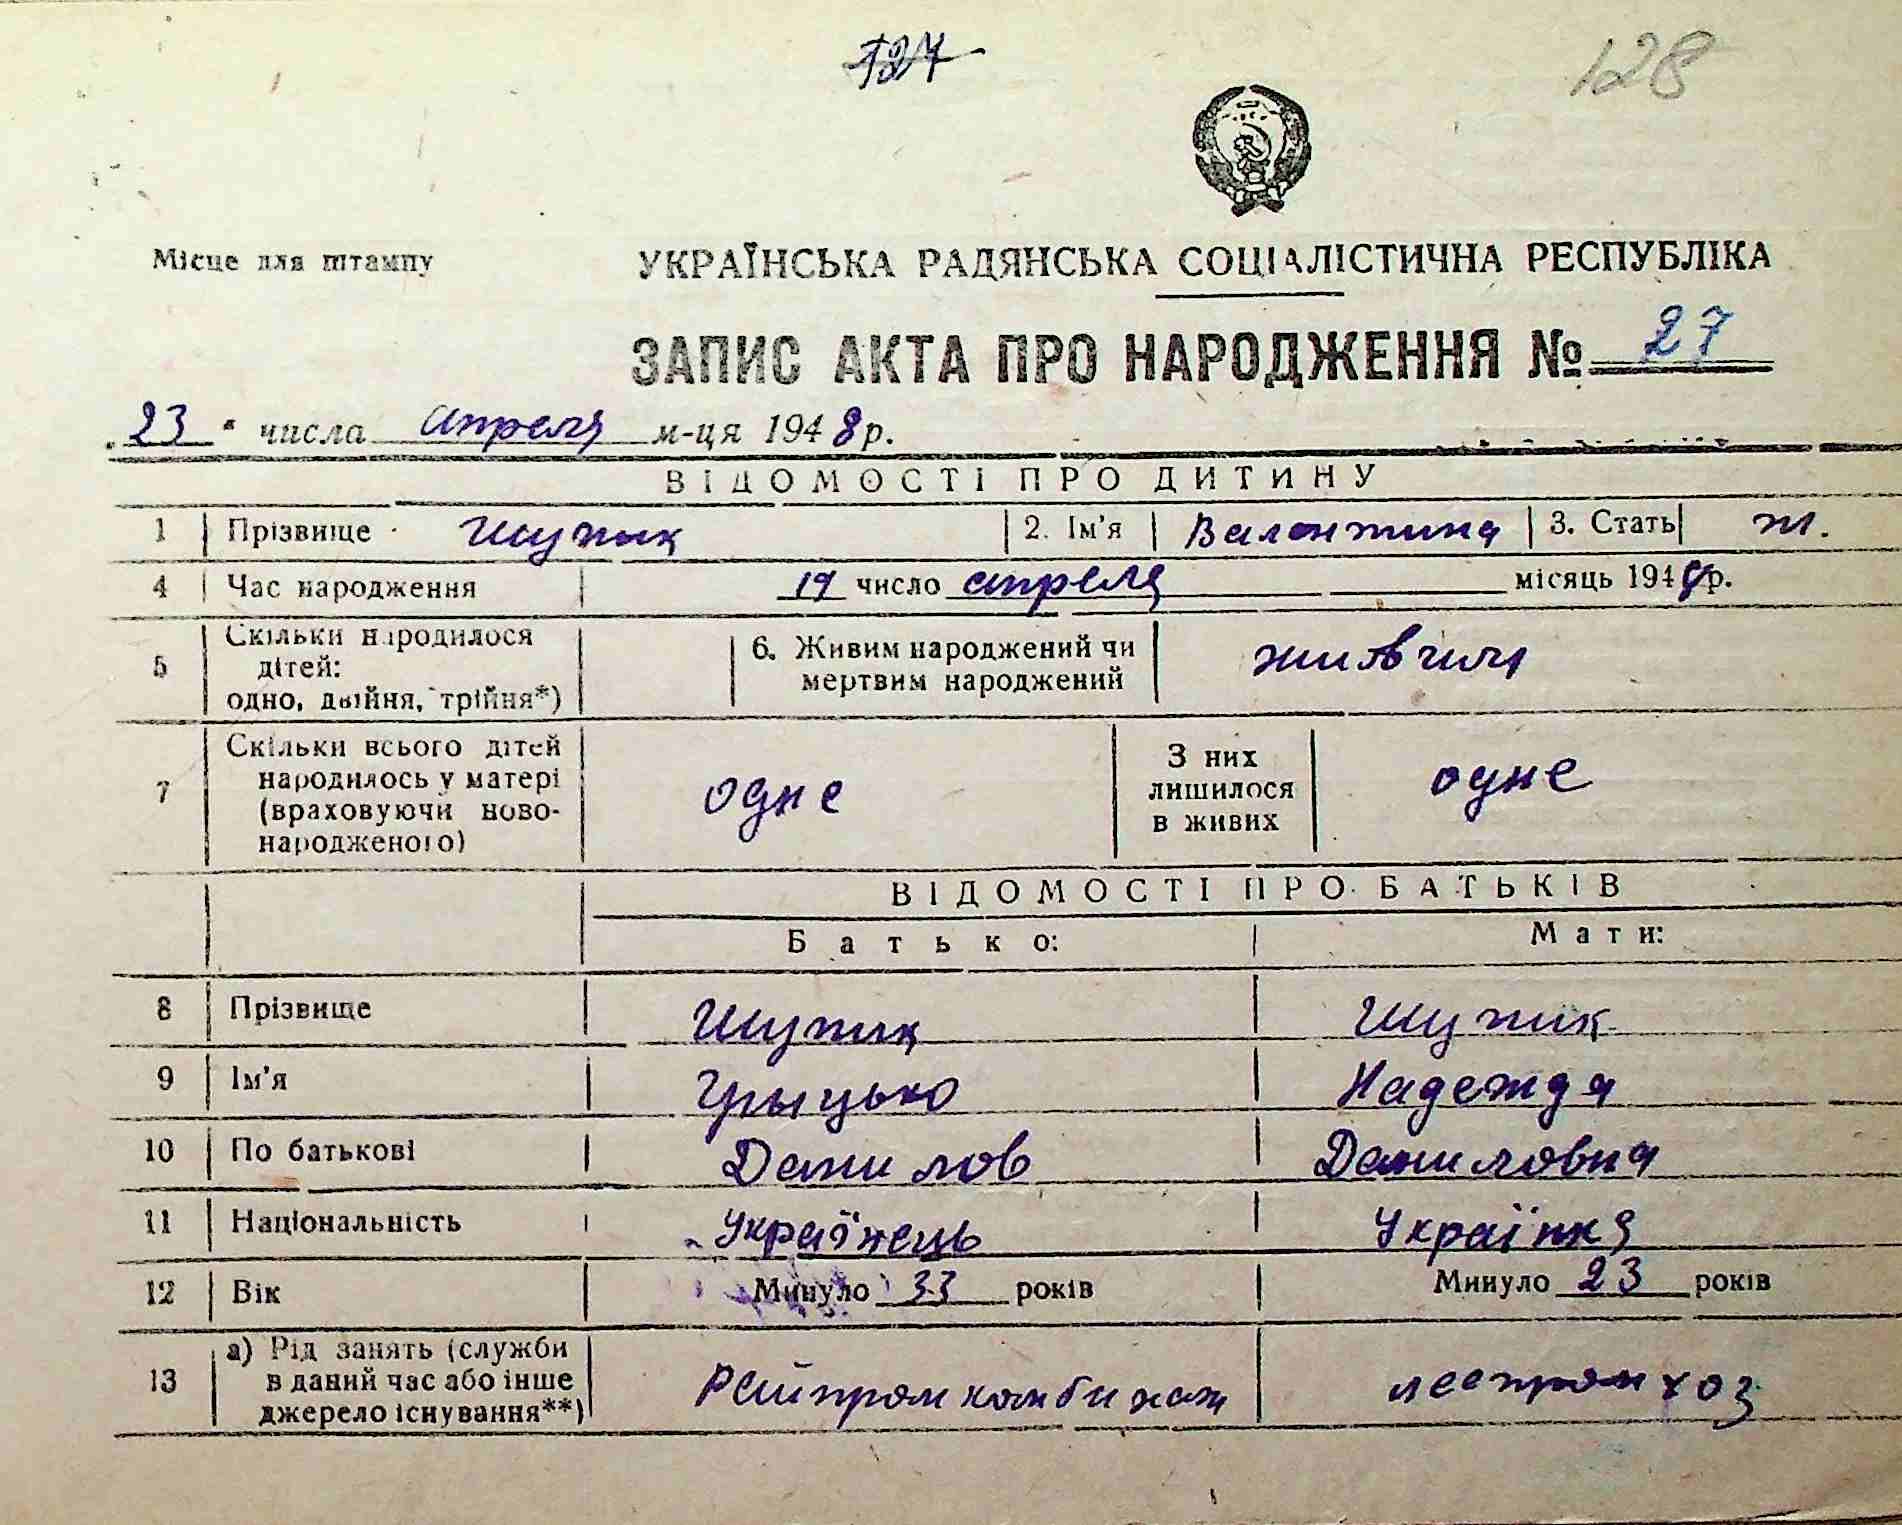 127
128
Місце для штампу
УКРАЇНСЬКА РАДЯНСЬКА СОЦІАЛІСТИЧНА РЕСПУБЛІКА
ЗАПИС АКТА ПРО НАРОДЖЕННЯ № 27
„23“ числа апреля м-ця 1948 р.
ВІДОМОСТІ ПРО ДИТИНУ
1 Прізвище Шупик 2. Ім'я Валентина 3. Стать ж.
4 Час народження 19 число апреля місяць 1948 р.
5 Скільки народилося
дітей:
одно, двійня, трійня*)
6. Живим народжений чи
мертвим народжений
живим
7 Скільки всього дітей
народилось у матері
(враховуючи ново-
народженого)
одне
З них
лишилося
в живих
одне
ВІДОМОСТІ ПРО БАТЬКІВ
Батько: Мати:
8 Прізвище Шупик Шупик
9 Ім'я Грыцько Надежда
10 По батькові Данилов Даниловна
11 Національність Українець Українка
12 Вік Минуло 33 років Минуло 23 років
13 а) Рід занять (служби
в даний час або інше
джерело існування**)
Райпромкомбинат леспромхоз